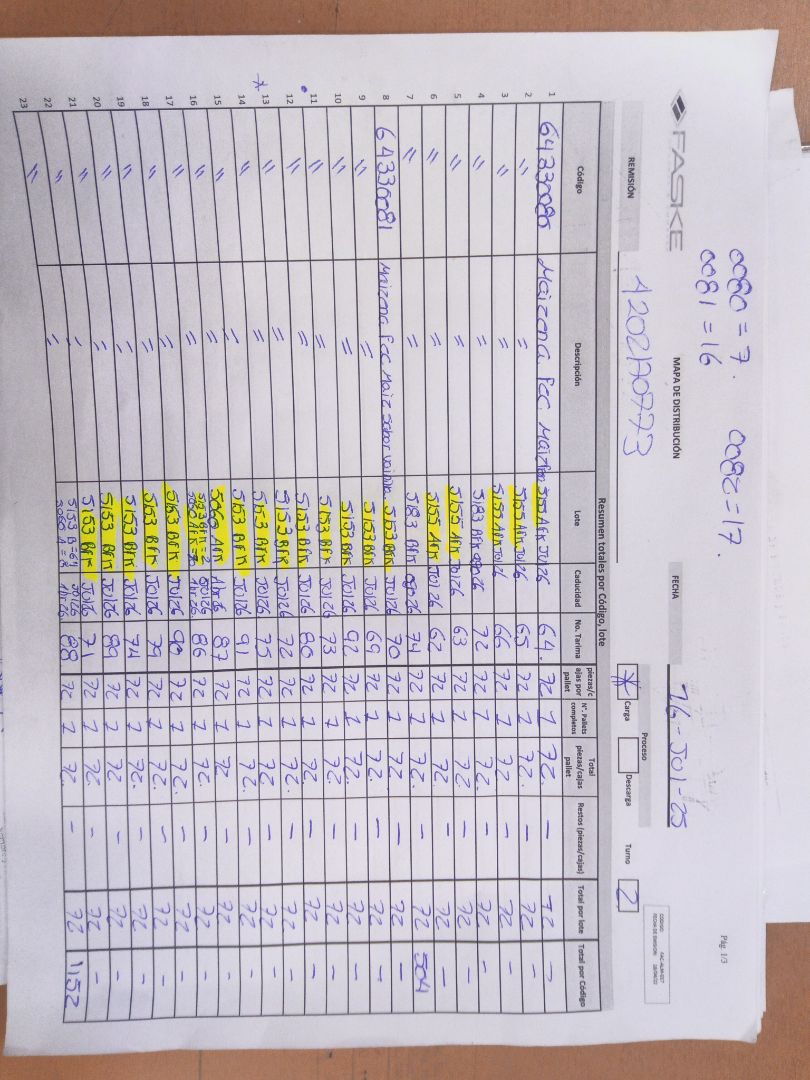 0080 = 7.
0081 = 16
0082 = 17.
Pág. 1/3
FASKE
MAPA DE DISTRIBUCIÓN
FECHA 16-JUl-25
Proceso
REMISIÓN 4202170773
Carga Descarga Turno 2
Resumen totales por Código, lote
Código Descripción Lote Caducidad No. Tarima piezas/cajas por pallet N°. Pallets completos Total piezas/cajas pallet Restos (piezas/cajas) Total por lote Total por Código
1 64330080 Maizena Fcc. 5155 AFK JUl26 64. 72 1 72. - 72 -
2 " = 5155 AFK JUl26 65 72 1 72. - 72 -
3 " = 5155 AFK JUl26 66 72 1 72 - 72 -
4 " = 5183 BFK ago26 72 72 1 72. - 72 -
5 " = 5155 AFK JUl26 63 72 1 72 - 72 -
6 " = 5155 AFK JUl26 62 72 1 72. - 72 -
7 " = 5183 BFK ago26 74 72 1 72. - 72 504
8 64330081 Maizena Fcc Maiz Sabor vainilla 5153 BFK JUl26 70 72 1 72. - 72 -
9 " = 5153 BFK JUl26 69 72 1 72. - 72 -
10 " = 5153 BFK JUl26 92 72 1 72. - 72 -
11 " = 5153 BFK JUl26 73 72 1 72. - 72 -
12 " = 5153 BFK JUl26 80 72 1 72. - 72 -
13 " = 5153 BFK JUl26 72 72 1 72. - 72 -
14 " = 5153 BFK JUl26 75 72 1 72. - 72 -
15 " = 5153 BFK JUl26 91 72 1 72. - 72 -
16 " = 5060 AFK Abr26 87 72 1 72 - 72 -
17 " = 5153 BFK=2 JUl26 86 72 1 72. - 72 -
5060 AFK=70 Abr26
18 " = 5153 BFK JUl26 90 72 1 72. - 72 -
19 " = 5153 BFK JUl26 79 72 1 72. - 72 -
20 " = 5153 BFK JUl26 74 72 1 72. - 72 -
21 " = 5153 BFK JUl26 89 72 1 72. - 72 -
22 " = 5153 BFK JUl26 71 72 1 72. - 72 -
23 " = 5153 B=64 JUl26 88 72 1 72. - 72 1152
5060 A=8 Abr26